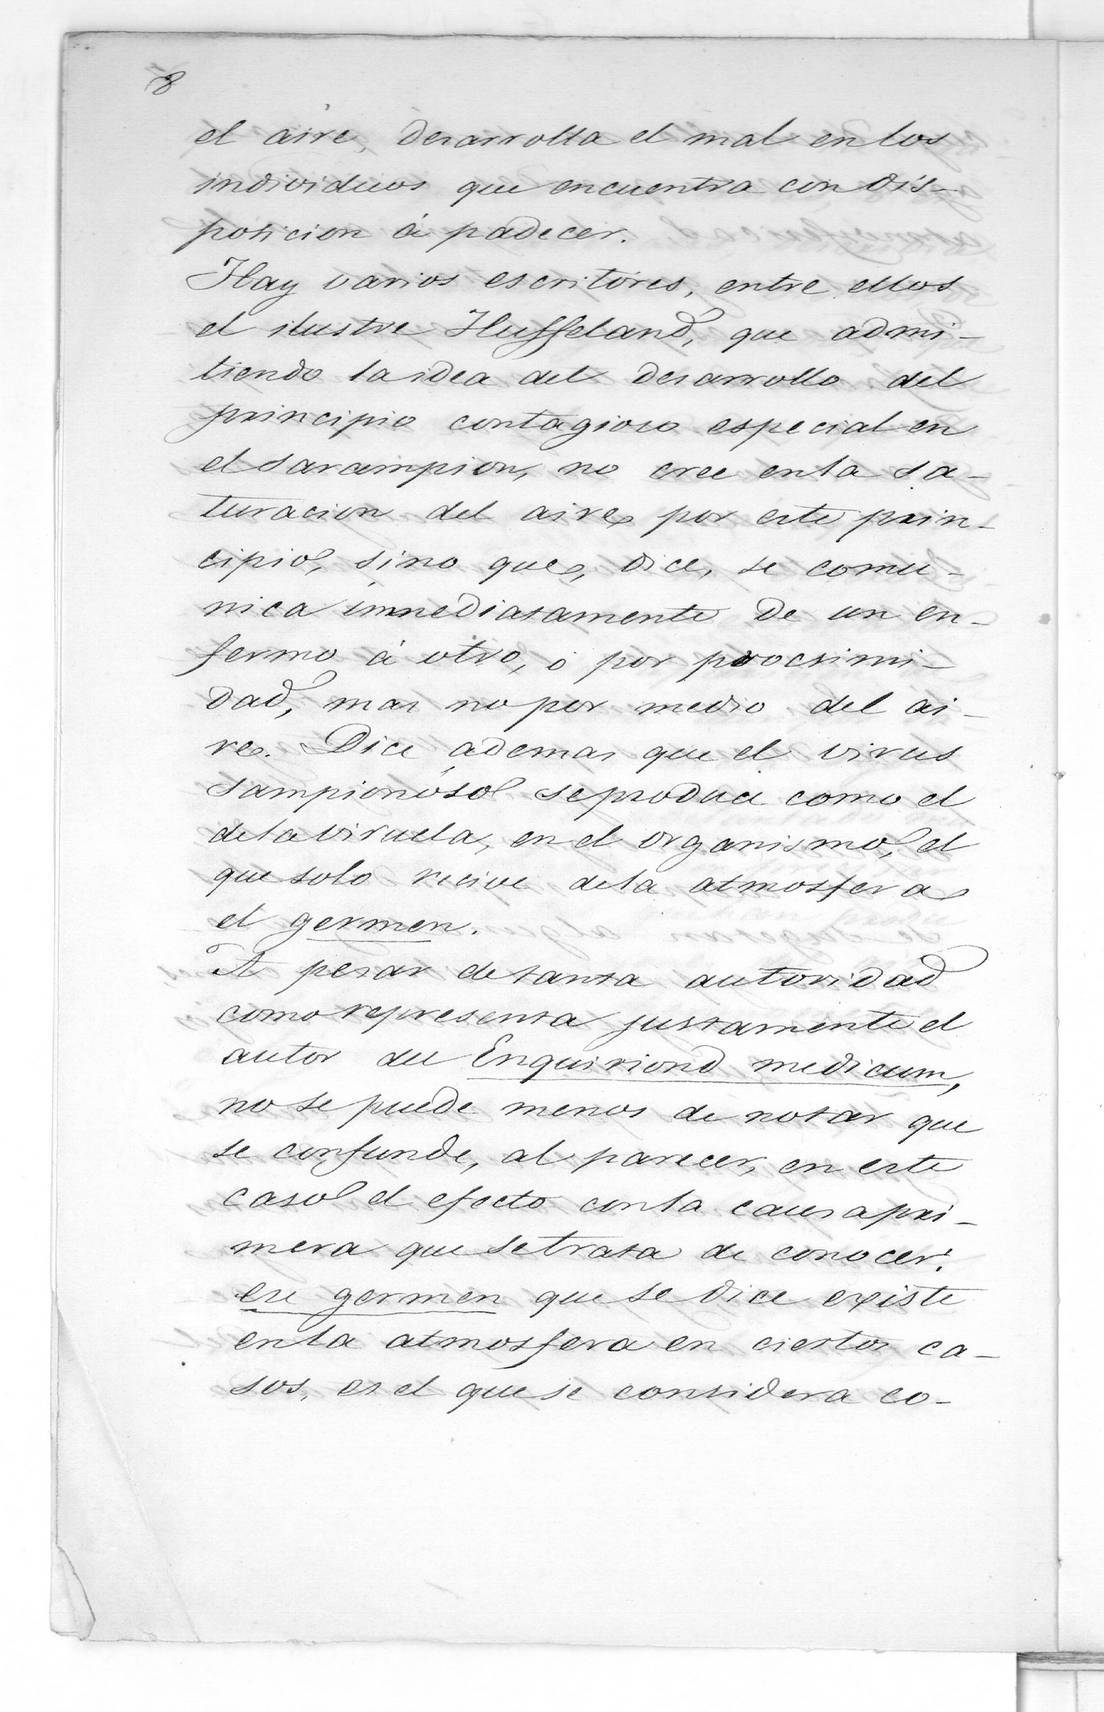 8
el aire, desarrolla el mal en los
individuos que encuentra con dis-
posicion á padecer.
Hay varios escritores, entre ellos
el ilustre Huffeland, que admi-
tiendo la idea del desarrollo del
principio contagioso especial en
el sarampion, no cree en la sa-
turacion del aire por este prin-
cipio, sino que, dice, se comu-
nica inmediatamente de un en-
fermo á otro, ó por procsimi-
dad, mas no por medio del ai-
re. Dice ademas que el virus
sampionóso se produce como el
de la viruela, en el organismo, el
que solo recive de la atmosfera
el germen.
A pesar de tanta autoridad
como representa justamente el
autor del Enquiriond medicum,
no se puede menos de notar que
se confunde, al parecer, en este
caso el efecto con la causa pri-
mera que se trata de conocer:
ese germen que se dice existe
en la atmosfera en ciertos ca-
sos, es el que se considera co-